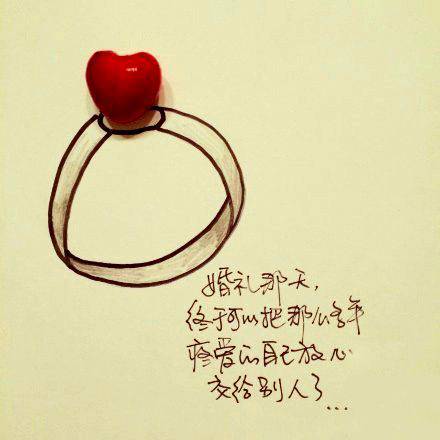 婚礼那天,
终于可以把那么多年
疼爱的自己放心
交给别人了...